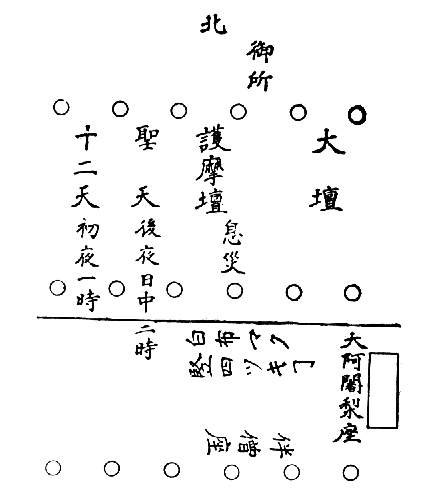 北
御所
大壇
護摩壇
息災
聖天後夜日中二時
十二天初夜一時
大阿闍梨座
白布マク
竪四ツキ了
伴僧座